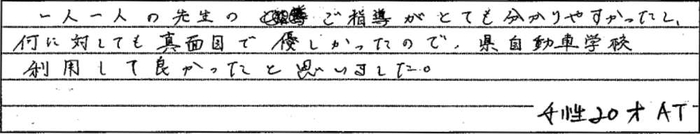 一人一人の先生のご指導がとても分かりやすかったし、
何に対しても真面目で優しかったので、県自動車学校
利用して良かったと思いました。
女性20才AT